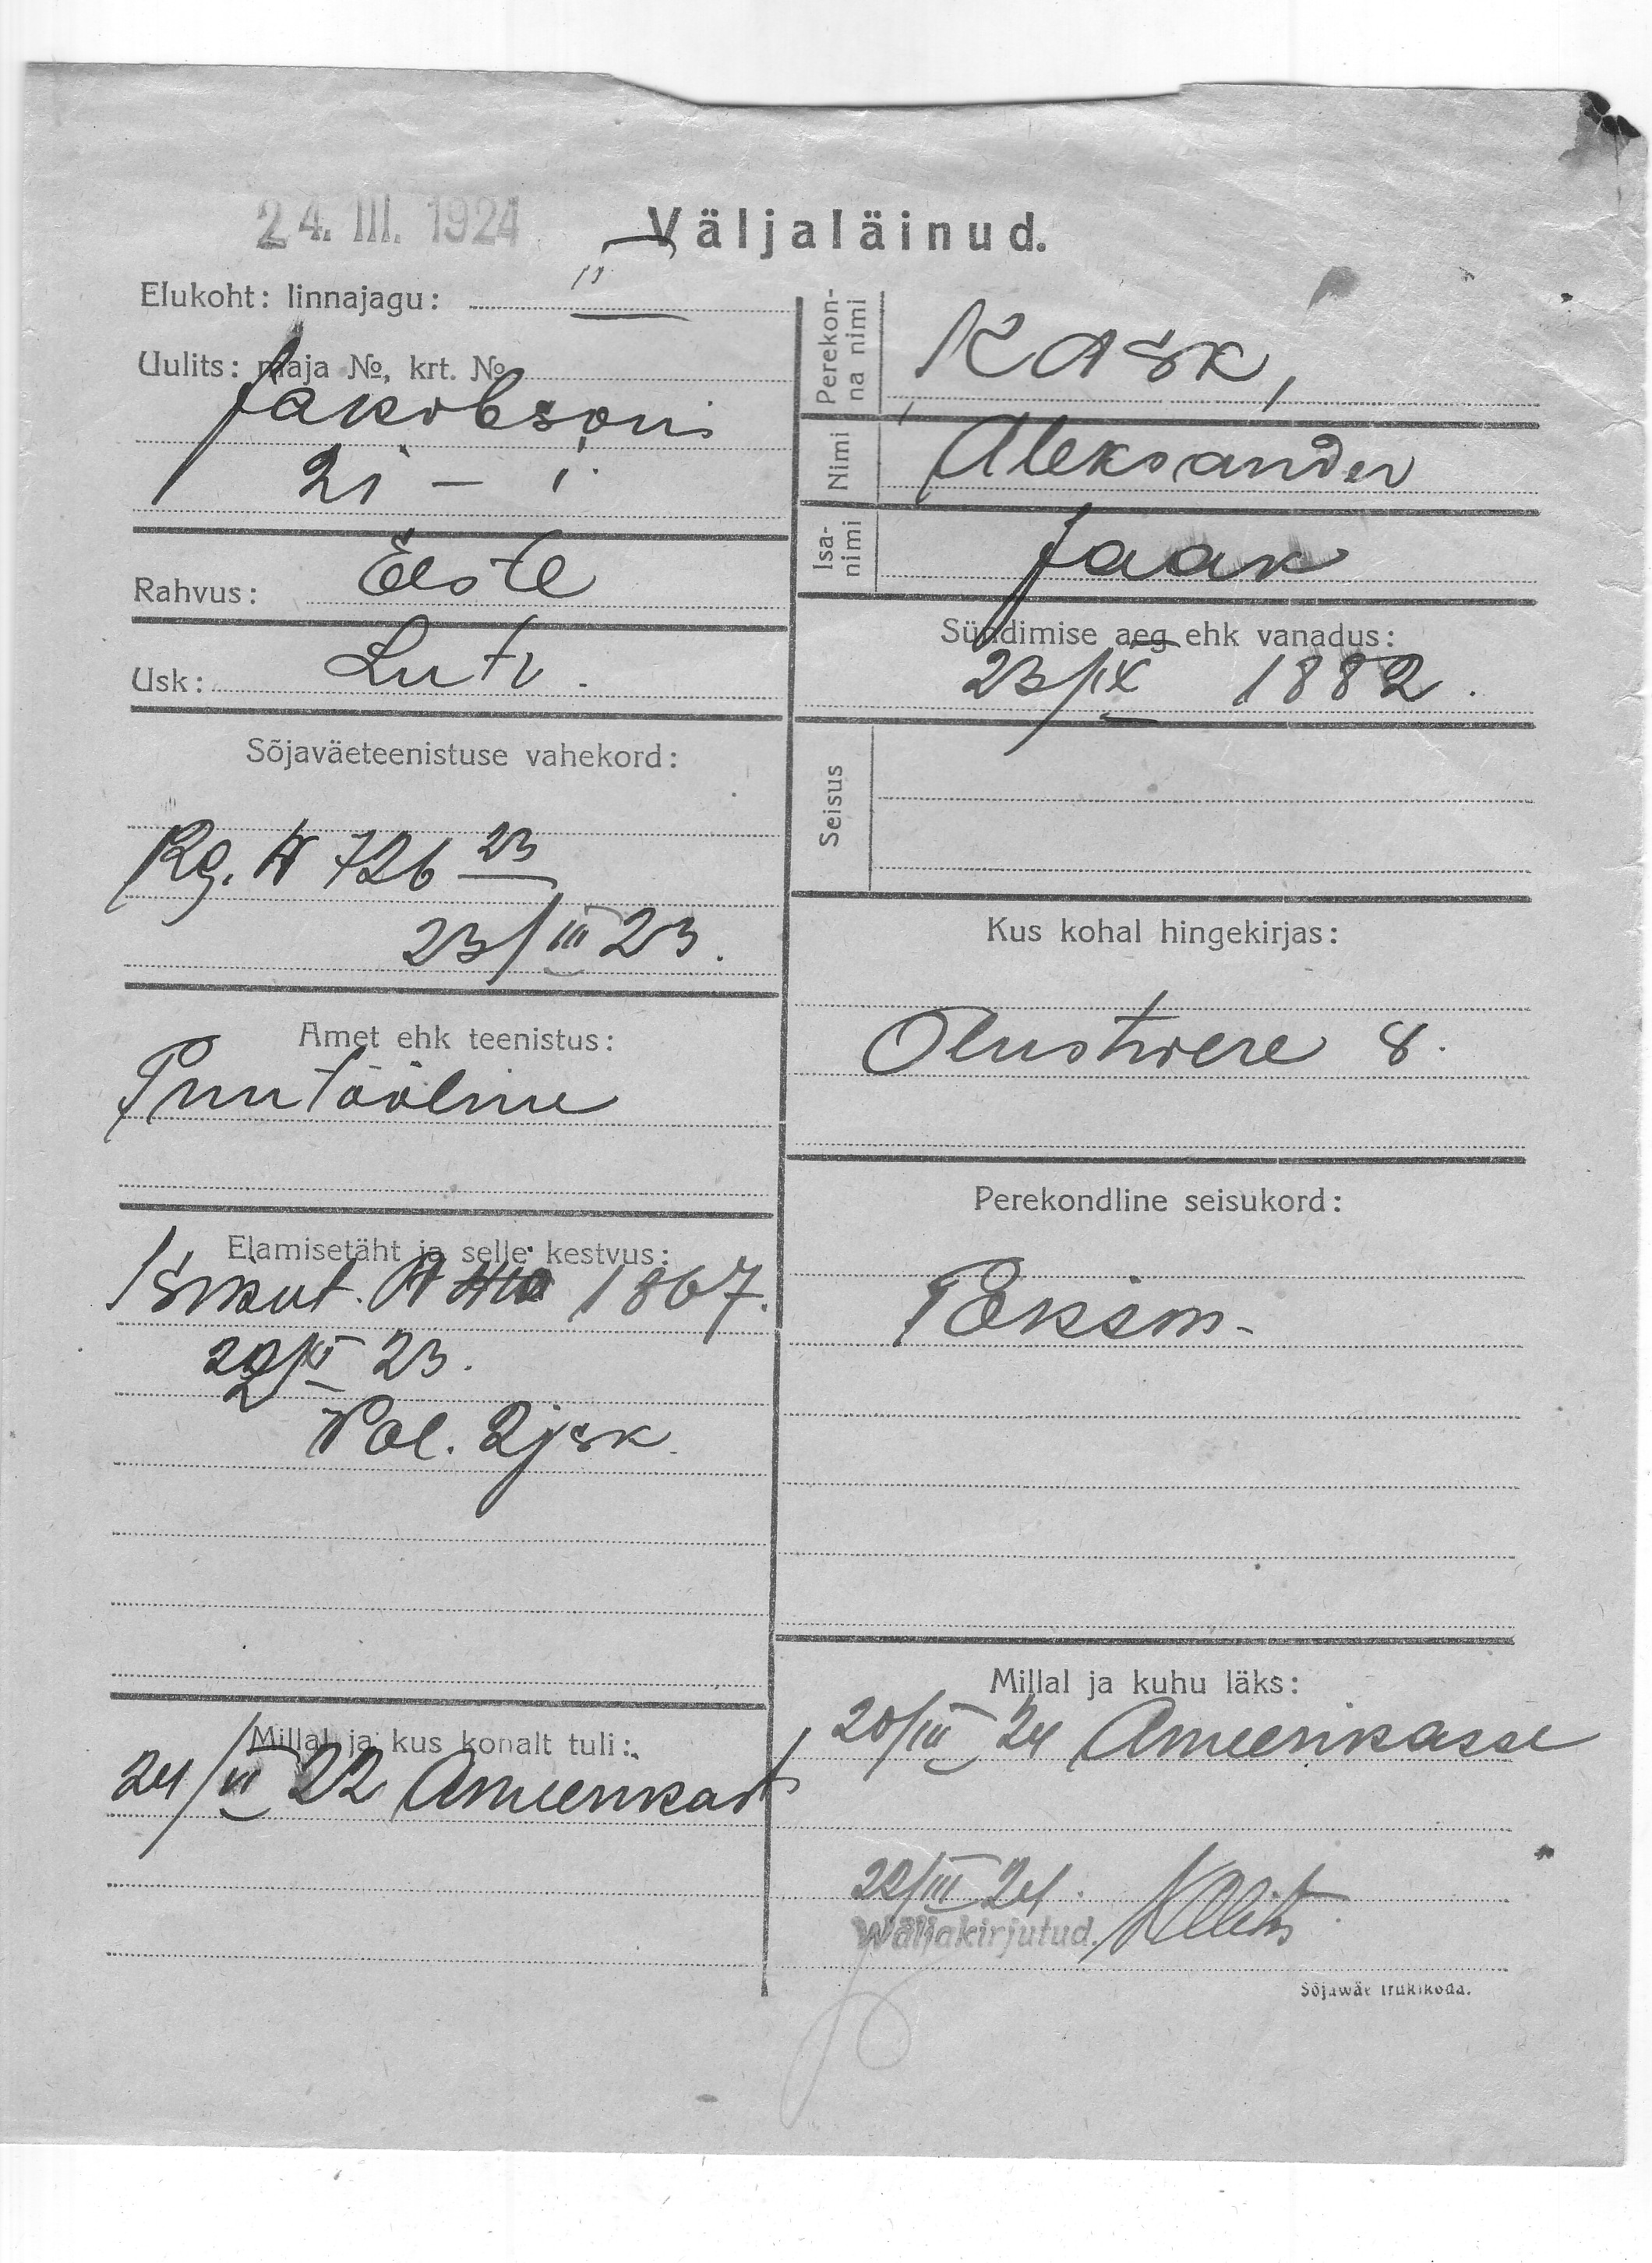 24. III. 1924
Väljaläinud.
Elukoht: linnajagu: II
Uulits: maja №, krt. №
Jakobsoni
21 – 1.
Rahvus: Eesti
Usk: Lut.
Sõjaväeteenistuse vahekord:
Rg. № 726 23
23/III 23.
Amet ehk teenistus:
Puutööline
Elamisetäht ja selle kestvus:
Isikut. 1867.
XI 23.
Pol. 2 jsk.
Millal ja kus kohalt tuli:
24/VI 22 Ameerikast
Perekonna nimi
Kask,
Nimi
Aleksander
Isanimi
Jaak
Sündimise aeg ehk vanadus:
23/IX 1882.
Seisus
Kus kohal hingekirjas:
Olustwere 8.
Perekondline seisukord:
Millal ja kuhu läks:
20/III 24 Ameerikasse
22/III 24.
Wäljakirjutud.
Sõjawäe trükikoda.